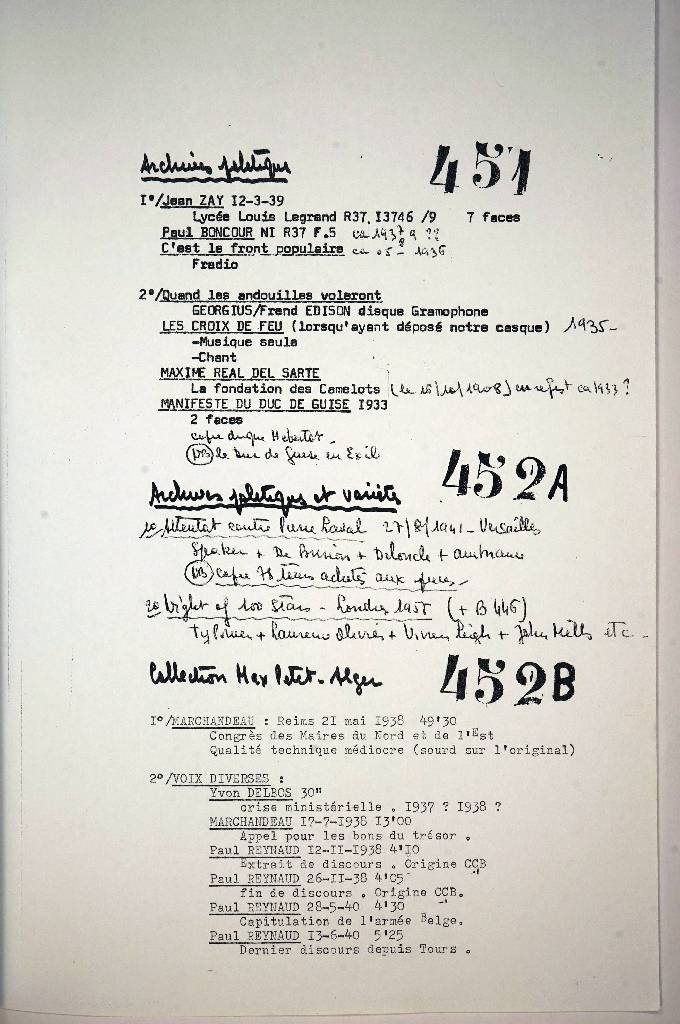 Archives politiques
451
I°/Jean ZAY I2-3-39
Lycée Louis Legrand R37.I3746 /9 7 faces
Paul BONCOUR NI R37 F.5 ca 1937 ??
C'est le front populaire ca 05- 1936
Fradio
2°/Quand les andouilles voleront
GEORGIUS/Frend EDISON disque Gramophone
LES CROIX DE FEU (lorsqu'ayant déposé notre casque) 1935-
-Musique seule
-Chant
MAXIME REAL DEL SARTE
La fondation des Camelots (le 16/10/1908) ca 1933 ?
MANIFESTE DU DUC DE GUISE I933
2 faces
copie disque Hebertot-
(NB) le Duc de Guise en Exil
452A
Archives politiques et variétés
1° Attentat contre Pierre Laval 27/8/1941- Versailles
Speaker + De Brinon + Deloncle + ambiance
(NB) copie 78 tours achetés aux puces-
2° Night of 100 Stars - Londres 1955 (+ B 446)
Ty Power + Laurence Olivier + Vivien Leigh + John Mills etc-
Collection Max Petit-Alger
452B
I°/MARCHANDEAU : Reims 2I mai I938 49'30
Congrès des Maires du Nord et de l'Est
Qualité technique médiocre (sourd sur l'original)
2°/VOIX DIVERSES :
Yvon DELBOS 30"
crise ministérielle . I937 ? I938 ?
MARCHANDEAU I7-7-I938 I3'00
Appel pour les bons du trésor .
Paul REYNAUD I2-II-I938 4'I0
Extrait de discours . Origine CCB
Paul REYNAUD 26-II-38 4'05
fin de discours . Origine CCB.
Paul REYNAUD 28-5-40 4'30
Capitulation de l'armée Belge.
Paul REYNAUD I3-6-40 5'25
Dernier discours depuis Tours .